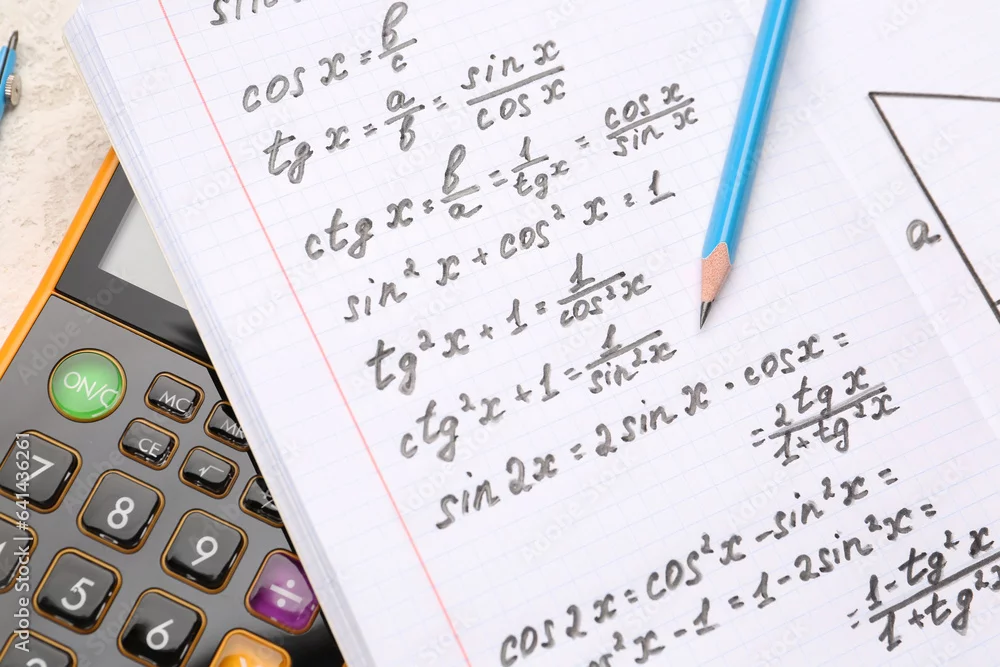 sin
cos x = b/c
tg x = a/b = sin x/cos x
ctg x = b/a = 1/tg x = cos x/sin x
sin² x + cos² x = 1
tg² x + 1 = 1/cos² x
ctg² x + 1 = 1/sin² x
sin 2x = 2 sin x · cos x =
= 2 tg x/1 + tg² x
cos 2x = cos² x - sin² x =
cos² x - 1 = 1 - 2 sin² x =
= 1 - tg² x/1 + tg² x
a
ON/C
MC
MR
CE
√
7
8
9
÷
5
6
Adobe Stock | #641436261
Adobe Stock